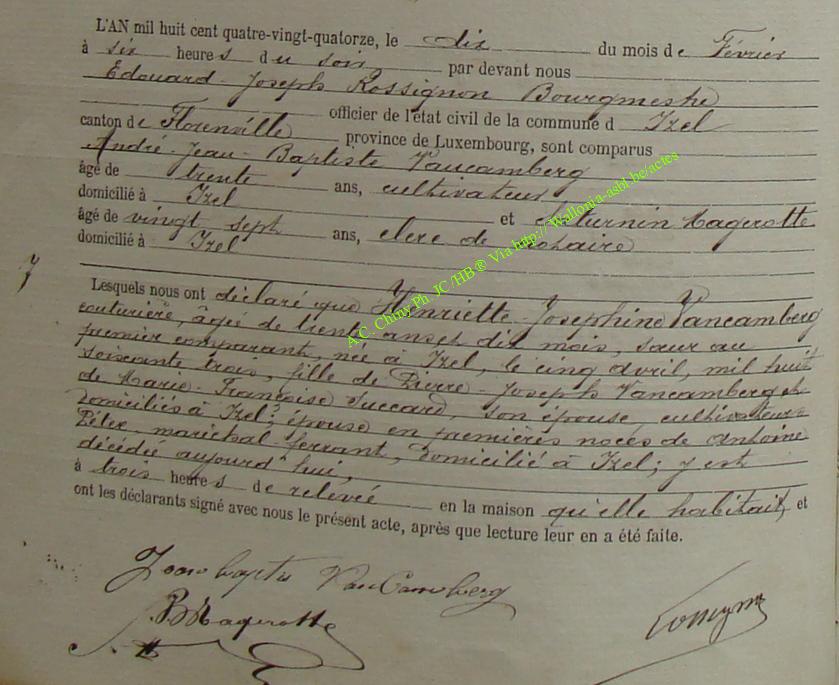 L'AN mil huit cent quatre-vingt-quatorze, le dix du mois de Février
à six heures du soir, par devant nous
Edouard-Joseph Rossignon Bourgmestre
officier de l'état civil de la commune d Izel
canton de Florenville province de Luxembourg, sont comparus
André-Jean-Baptiste Vancamberg
âgé de trente ans, cultivateur
domicilié à Izel et Saturnin Magerotte
âgé de vingt sept ans, clerc de notaire
domicilié à Izel
Lesquels nous ont déclaré que Henriette-Josephine Vancamberg
couturière, âgée de trente ans et dix mois, sœur au
premier comparant, née à Izel, le cinq avril, mil huit
soixante trois, fille de Pierre-Joseph Vancamberg et
de Marie-Françoise Succard, son épouse, cultivateurs
domiciliés à Izel; épouse en premières noces de Antoine
Péter, maréchal-ferrant, domicilié à Izel; y est
décédée aujourd'hui,
à trois heures de relevée en la maison qu'elle habitait, et
ont les déclarants signé avec nous le présent acte, après que lecture leur en a été faite.
Jean baptis VanCamberg
Magerotte
A.C. Chiny Ph. JC /HB ® Via http://Wallonia-asbl.be/actes